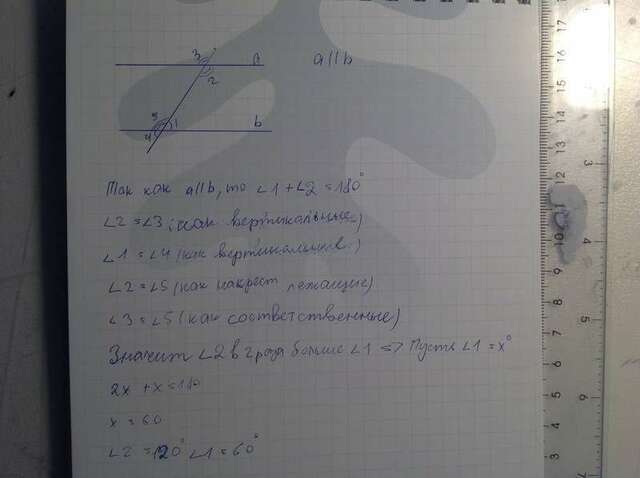 3 a a||b
2
5 1 b
4
Так как a||b, то ∠1+∠2=180°
∠2=∠3 (как вертикальные)
∠1=∠4 (как вертикальные)
∠2=∠5 (как накрест лежащие)
∠3=∠5 (как соответственные)
Значит ∠2 в 2 раза больше ∠1 => Пусть ∠1=x°
2x+x=180
x=60
∠2=120° ∠1=60°
17
16
15
14
13
12
11
10
9
8
7
6
5
4
3
3
4
5
6
7